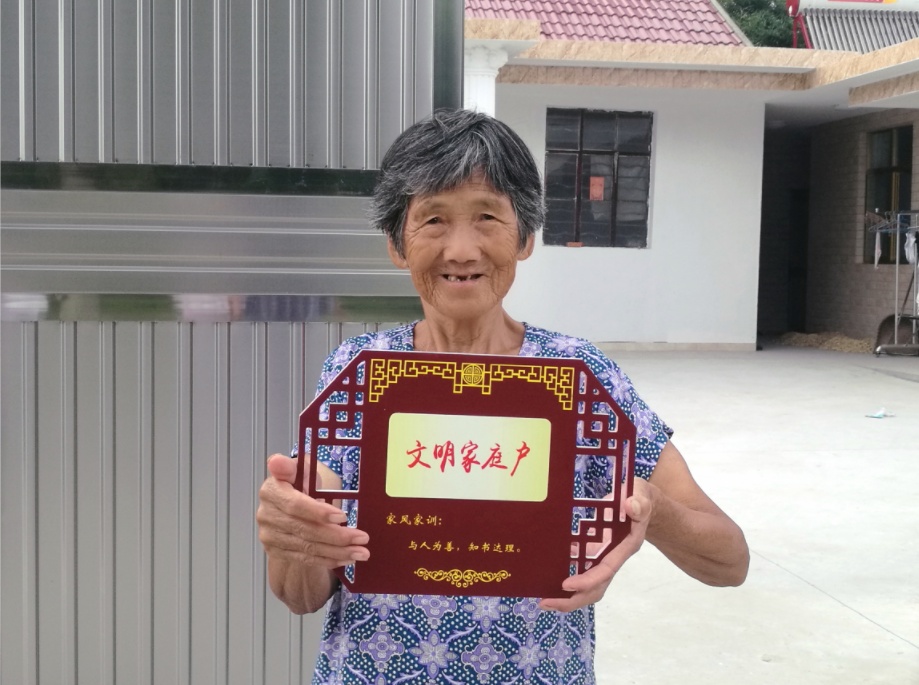 文明家庭户
家风家训：
与人为善，知书达理。